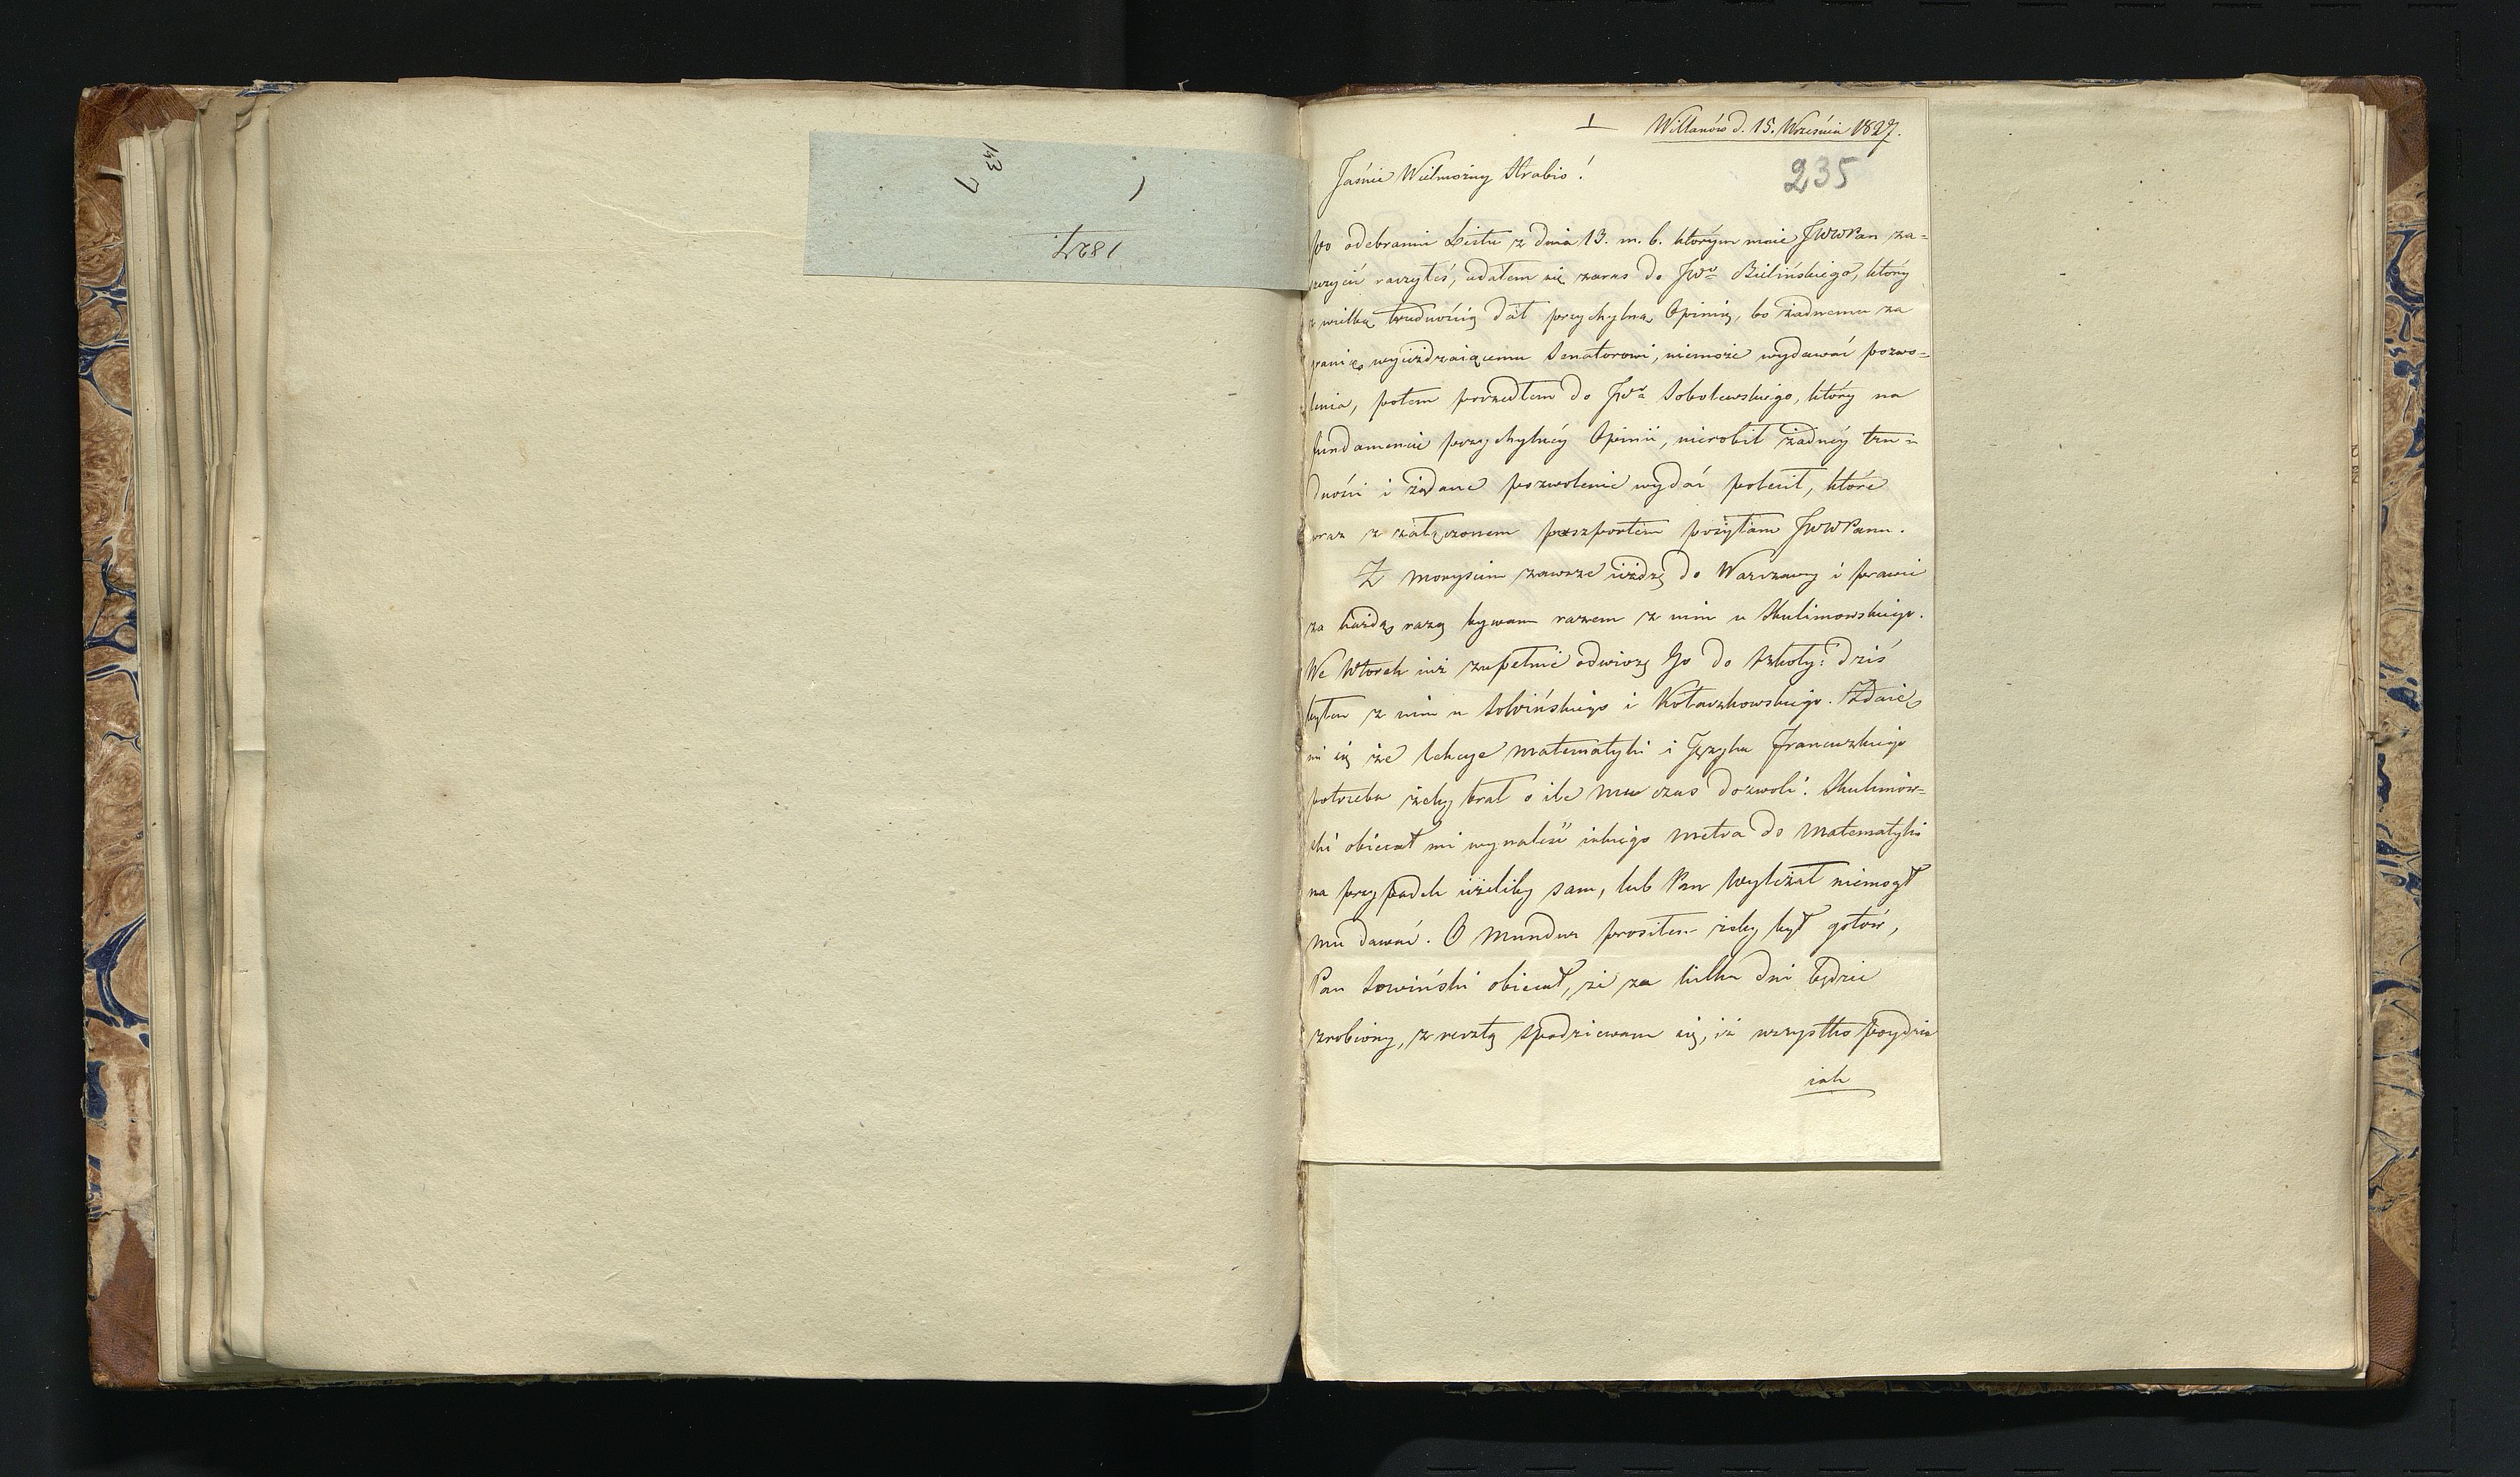 143
7
1827.
1
Willanów d. 15. Września 1827.
235
Jaśnie Wielmożny Hrabio!
Po odebraniu Listu z dnia 13. m. b. którym mnie JWWPan za=
szczycić raczyłeś, udałem się zaraz do JWo Bielińskiego, który
z wielką trudnością dał przychylną Opinię, bo żadnemu za
granicę wyieżdzaiącemu Senatorowi, niemoże wydawać pozwo=
lenia, potem poszedłem do JWo Sobolewskiego, który na
fundamencie przychylnéy Opinii, nierobił żadnéy tru=
dności i żądane pozwolenie wydać polecił, które
wraz z załączonem paszportem posyłam JWWPanu.
Z Morysiem zawsze ieżdżę do Warszawy i prawie
za każdą razą bywam razem z nim u Skulimowskiego.
We Wtorek iuż zupełnie odwiozę Go do szkoły: dziś
byłem z nim u Sowińskiego i Kołaczkowskiego. Zdaie
mi się że lekcye matematyki i Języka francuzkiego
potrzeba żeby brał o ile mu czas dozwoli. Skulimow=
ski obiecał mi wynaleść iakiego metra do matematyki
na przypadek ieżeliby sam, lub Pan niemógł
mu dawać. O Mundur prosiłem żeby był gotów,
Pan Sowiński obiecał, że za kilka dni będzie
zrobiony, z resztą spodziewam się, iż wszystko poydzie
iak